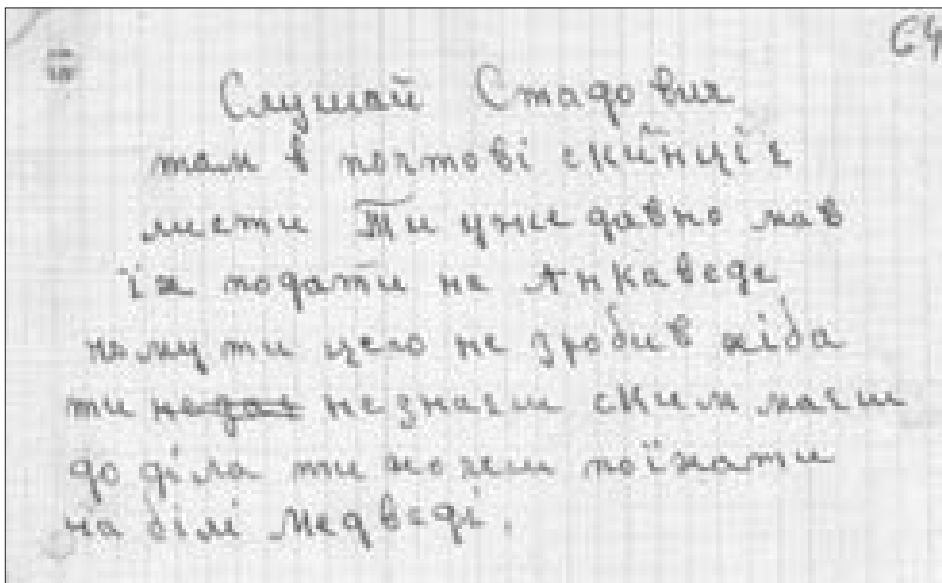 64
Слушай Стадович
там в почтові скйнції є
листи Ти уже давно мав
їх подати на Анкаведе
чому ти цего не зробив хіба
ти не знаєш ским маєш
до діла ти можеш поїхати
на білі медведі.